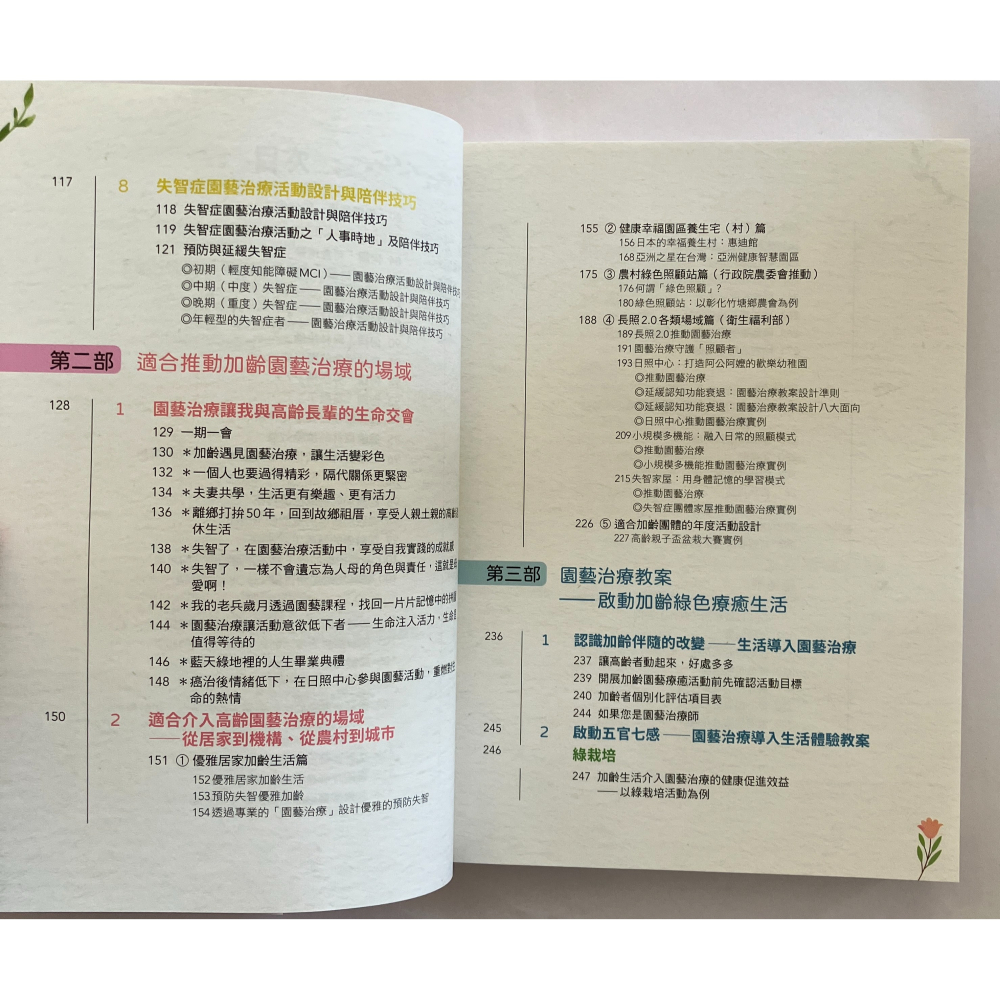 117 8 失智症園藝治療活動設計與陪伴技巧
118 失智症園藝治療活動設計與陪伴技巧
119 失智症園藝治療活動之「人事時地」及陪伴技巧
121 預防與延緩失智症
◎初期（輕度知能障礙MCI）——園藝治療活動設計與陪伴技巧
◎中期（中度）失智症——園藝治療活動設計與陪伴技巧
◎晚期（重度）失智症——園藝治療活動設計與陪伴技巧
◎年輕型的失智症者——園藝治療活動設計與陪伴技巧
第二部 適合推動加齡園藝治療的場域
128 1 園藝治療讓我與高齡長輩的生命交會
129 一期一會
130 ＊加齡遇見園藝治療，讓生活變彩色
132 ＊一個人也要過得精彩，隔代關係更緊密
134 ＊夫妻共學，生活更有樂趣、更有活力
136 ＊離鄉打拚50年，回到故鄉祖厝，享受人親土親的
休生活
138 ＊失智了，在園藝治療活動中，享受自我實踐的成就感
140 ＊失智了，一樣不會遺忘為人母的角色與責任，這就是
愛啊！
142 ＊我的老兵歲月透過園藝課程，找回一片片記憶中的
144 ＊園藝治療讓活動意欲低下者——生命注入活力，生命是
值得等待的
146 ＊藍天綠地裡的人生畢業典禮
148 ＊癌治後情緒低下，在日照中心參與園藝活動，重燃對生
命的熱情
150 2 適合介入高齡園藝治療的場域
——從居家到機構、從農村到城市
151 ① 優雅居家加齡生活篇
152優雅居家加齡生活
153預防失智優雅加齡
154透過專業的「園藝治療」設計優雅的預防失智
155 ② 健康幸福園區養生宅（村）篇
156日本的幸福養生村：惠迪館
168亞洲之星在台灣：亞洲健康智慧園區
175 ③ 農村綠色照顧站篇（行政院農委會推動）
176何謂「綠色照顧」？
180綠色照顧站：以彰化竹塘鄉農會為例
188 ④ 長照2.0各類場域篇（衛生福利部）
189長照2.0推動園藝治療
191園藝治療守護「照顧者」
193日照中心：打造阿公阿嬤的歡樂幼稚園
◎推動園藝治療
◎延緩認知功能衰退：園藝治療教案設計準則
◎延緩認知功能衰退：園藝治療教案設計八大面向
◎日照中心推動園藝治療實例
209小規模多機能：融入日常的照顧模式
◎推動園藝治療
◎小規模多機能推動園藝治療實例
215失智家屋：用身體記憶的學習模式
◎推動園藝治療
◎失智症團體家屋推動園藝治療實例
226 ⑤ 適合加齡團體的年度活動設計
227高齡親子盃盆栽大賽實例
第三部 園藝治療教案
——啟動加齡綠色療癒生活
236 1 認識加齡伴隨的改變——生活導入園藝治療
237 讓高齡者動起來，好處多多
239 開展加齡園藝療癒活動前先確認活動目標
240 加齡者個別化評估項目表
244 如果您是園藝治療師
245 2 啟動五官七感——園藝治療導入生活體驗教案
246 綠栽培
247 加齡生活介入園藝治療的健康促進效益
——以綠栽培活動為例